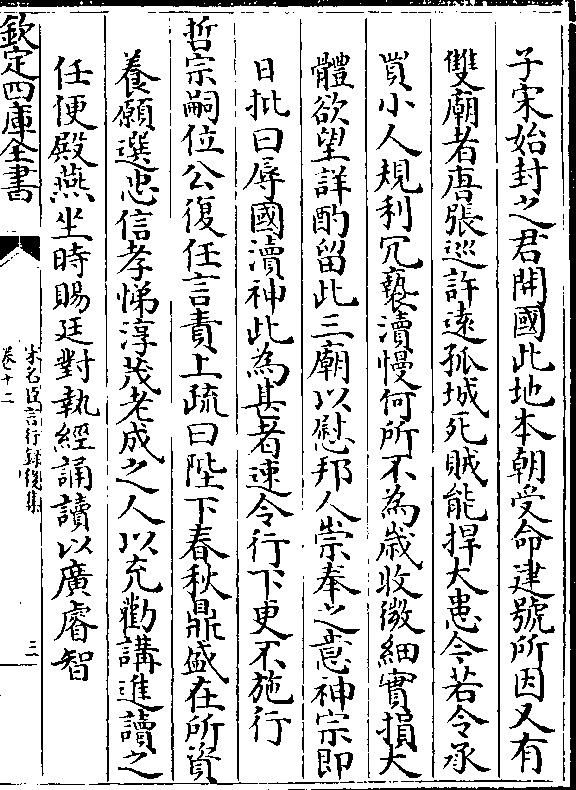 子宋始封之君開國此地本朝受命建號所因又有
雙廟者唐張巡許遠孤城死賊能捍大患今若令承
買小人規利冗褻瀆慢何所不為歲收微細實損大
體欲望詳酌留此三廟以慰邦人崇奉之意神宗即
日批曰辱國瀆神此為甚者速令行下更不施行
哲宗嗣位公復任言責上疏曰陛下春秋鼎盛在所資
養願選忠信孝悌淳茂老成之人以充勸講進讀之
任便殿燕坐時賜廷對執經誦讀以廣睿智
欽定四庫全書
宋名臣言行錄後集
卷十二
三